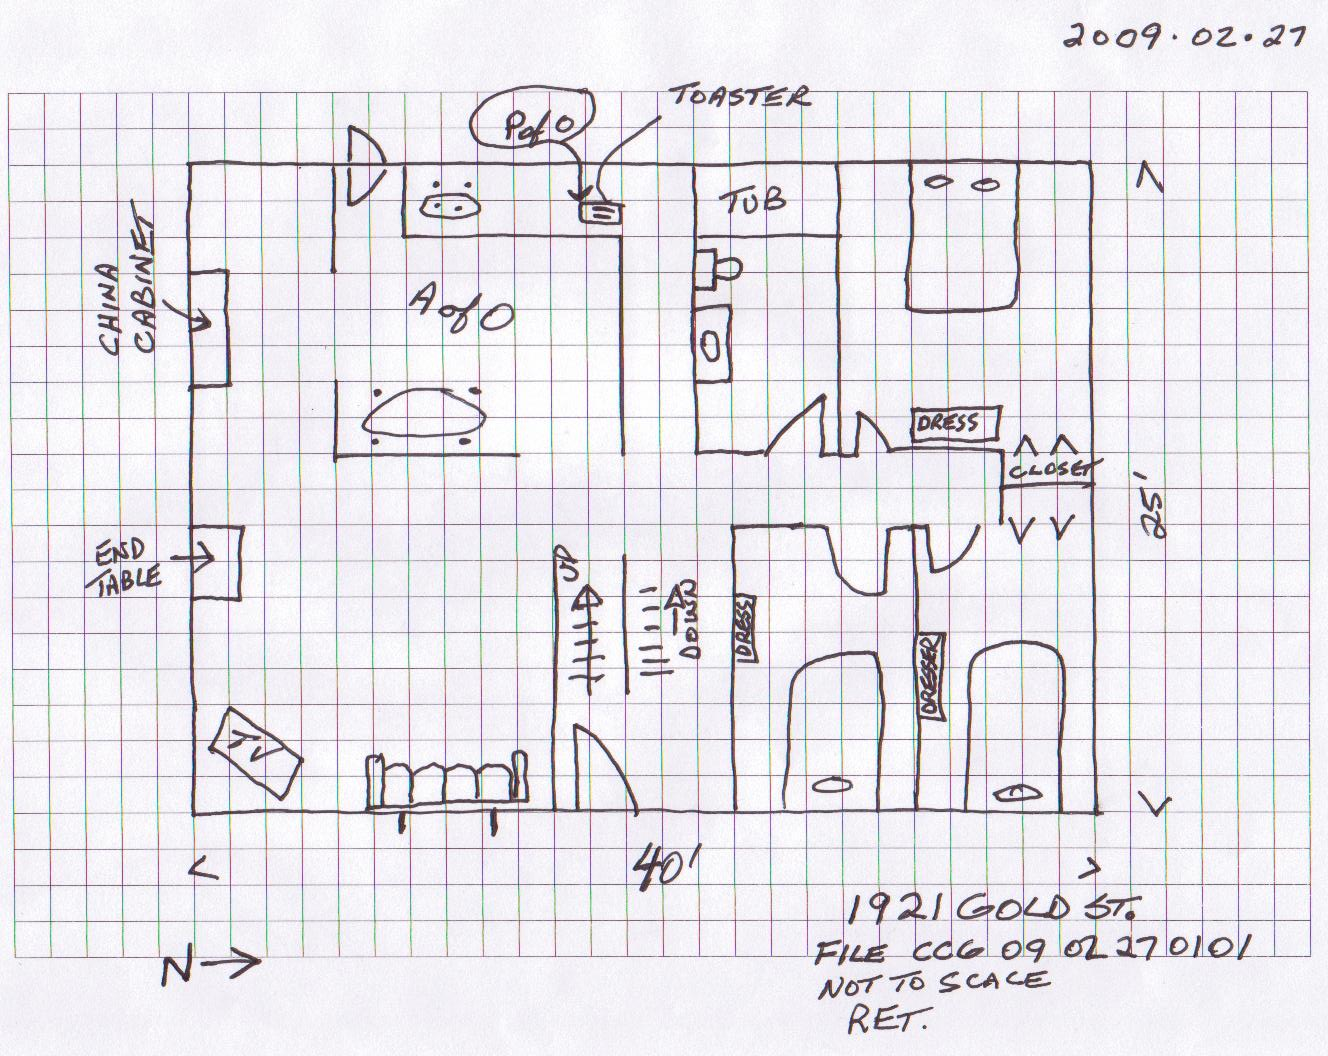 2009.02.27
TOASTER
P of O
TUB
CHINA
CABINET
A of O
DRESS
CLOSET
25'
END
TABLE
UP
DOWN
DRESS
DRESSER
TV
40'
1921 GOLD ST.
N
FILE CCG 09 02 27 0101
NOT TO SCALE
RET.